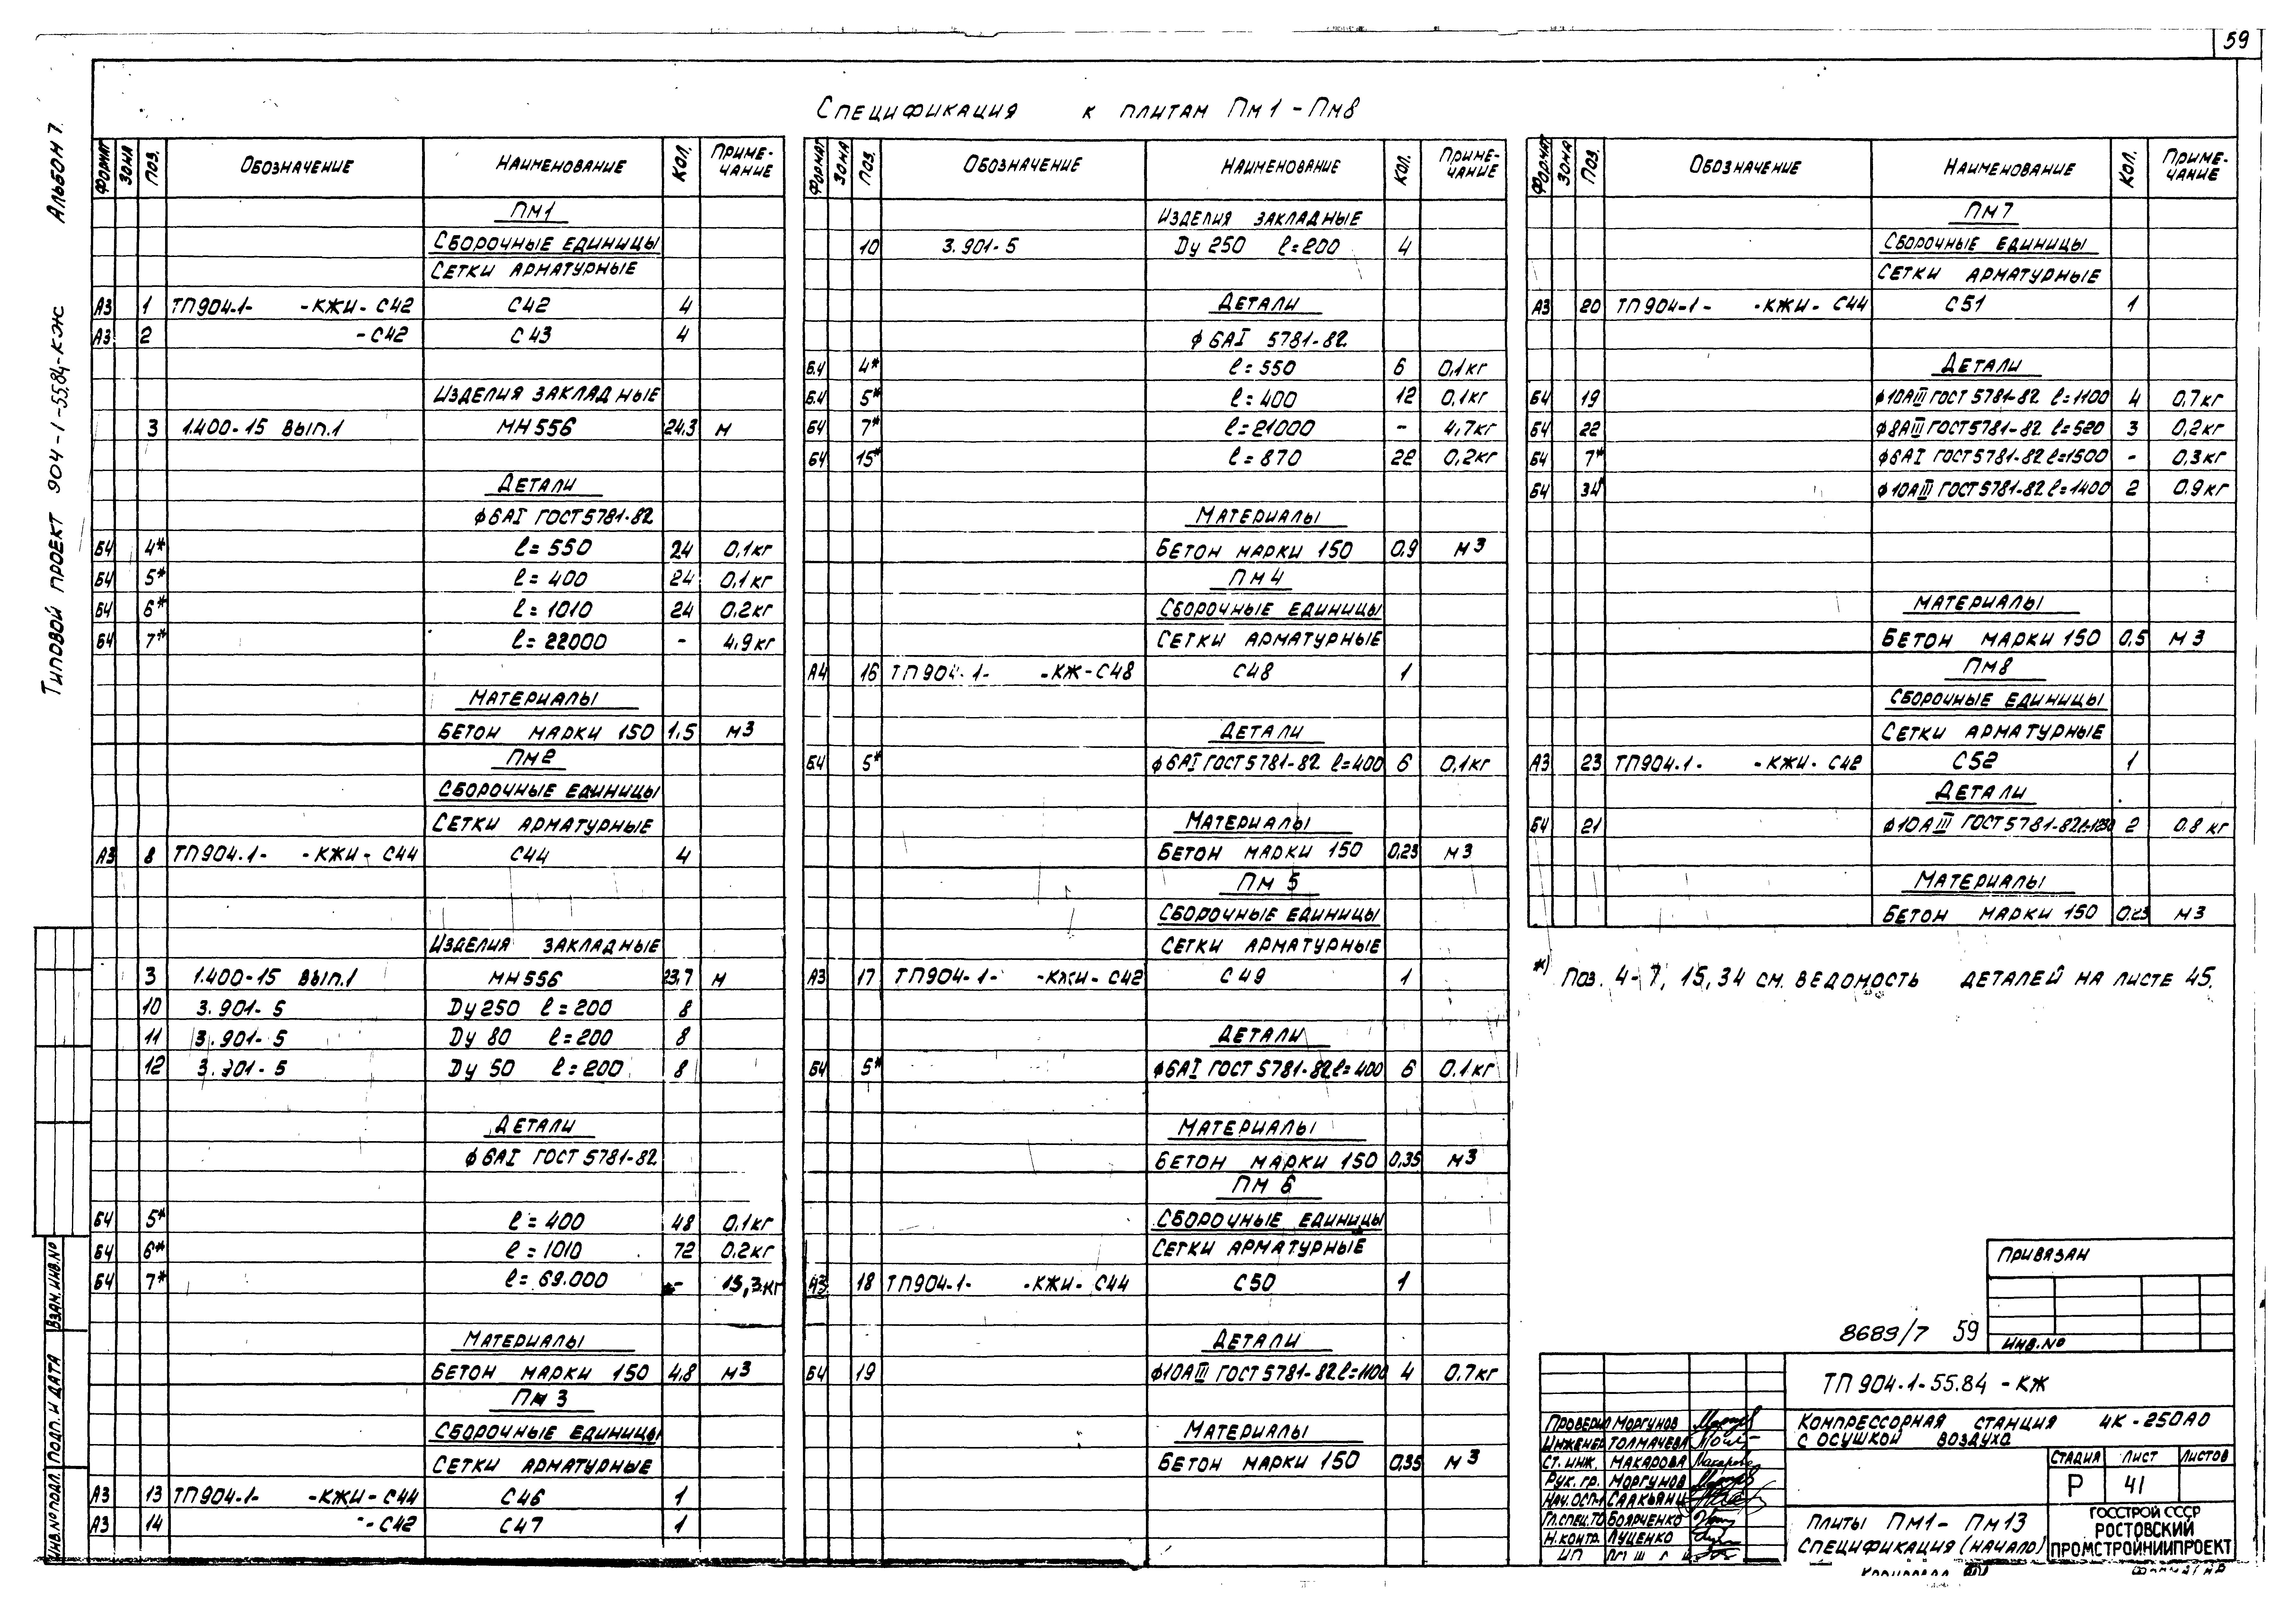 59
Альбом 7
Типовой проект 904-1-55.84-КЖ
Спецификация к плитам Пм1 - Пм8
Формат Зона Поз. Обозначение Наименование Кол. Приме-чание
Пм1
Сборочные единицы
Сетки арматурные
А3 1 ТП904-1- -КЖИ-С42 С42 4
А3 2 -С42 С43 4
Изделия закладные
3 1.400-15 вып.1 МН556 24,3 м
Детали
ф6АI ГОСТ5781-82
Б4 4* l=550 24 0,1кг
Б4 5* l=400 24 0,1кг
Б4 6* l=1010 24 0,2кг
Б4 7* l=22000 - 4,9кг
Материалы
Бетон марки 150 1,5 м3
Пм2
Сборочные единицы
Сетки арматурные
А3 8 ТП904.1- -КЖИ-С44 С44 4
Изделия закладные
3 1.400-15 вып.1 МН556 23,7 м
10 3.901-5 Dу250 l=200 8
11 3.901-5 Dу 80 l=200 8
12 3.901-5 Dу 50 l=200 8
Детали
ф6АI ГОСТ5781-82
Б4 5* l=400 48 0,1кг
Б4 6* l=1010 72 0,2кг
Б4 7* l=69.000 - 15,3кг
Материалы
Бетон марки 150 4,8 м3
Пм 3
Сборочные единицы
Сетки арматурные
А3 13 ТП904-1- -КЖИ-С44 С46 1
А3 14 -С42 С47 1
Формат Зона Поз. Обозначение Наименование Кол. Приме-чание
Изделия закладные
10 3.901-5 Dу 250 l=200 4
Детали
ф6АI 5781-82
Б4 4* l=550 6 0,1кг
Б4 5* l=400 12 0,1кг
Б4 7* l=21000 - 4,7кг
Б4 15* l=870 22 0,2кг
Материалы
Бетон марки 150 0,9 м3
Пм 4
Сборочные единицы
Сетки арматурные
А4 16 ТП904-1- -КЖ-С48 С48 1
Детали
Б4 5* ф6АI ГОСТ5781-82 l=400 6 0,1кг
Материалы
Бетон марки 150 0,23 м3
Пм 5
Сборочные единицы
Сетки арматурные
А3 17 ТП904-1- -КЖИ-С42 С49 1
Детали
Б4 5* ф6АI ГОСТ 5781-82 l=400 6 0.1кг
Материалы
Бетон марки 150 0,35 м3
Пм 6
Сборочные единицы
Сетки арматурные
А3 18 ТП904-1- -КЖИ-С44 С50 1
Детали
Б4 19 ф10АIII ГОСТ5781-82 l=1100 4 0.7кг
Материалы
Бетон марки 150 0,35 м3
Формат Зона Поз. Обозначение Наименование Кол. Приме-чание
Пм7
Сборочные единицы
Сетки арматурные
А3 20 ТП904-1- -КЖИ-С44 С51 1
Детали
Б4 19 ф10АIII ГОСТ5781-82 l=1100 4 0,7кг
Б4 22 ф8АIII ГОСТ5781-82 l=520 3 0,2кг
Б4 7* ф6АI ГОСТ5781-82 l=1500 - 0,3кг
Б4 34* ф10АIII ГОСТ5781-82 l=1400 2 0.9кг
Материалы
Бетон марки 150 0,5 м3
Пм8
Сборочные единицы
Сетки арматурные
А3 23 ТП904.1- -КЖИ-С42 С52 1
Детали
Б4 21 ф10АIII ГОСТ5781-82 2 0.8 кг
Материалы
Бетон марки 150 0.23 м3
*) Поз. 4-7, 15, 34 см. ведомость деталей на листе 45.
Привязан
Инв.№
8689/7 59
ТП 904-1-55.84 -КЖ
Компрессорная станция 4К-250АО
с осушкой воздуха
Проверил Моргунов
Инженер Толмачева
Ст. инж. Макарова
Рук. гр. Моргунов
Гл.спец.ТО Боярченко
Н.контр. Луценко
Стадия Лист Листов
Р 41
Плиты Пм1 - Пм13
Спецификация (начало)
ГОССТРОЙ СССР
РОСТОВСКИЙ
ПРОМСТРОЙНИИПРОЕКТ
Инв.№подл. Подп. и дата Взам.инв.№